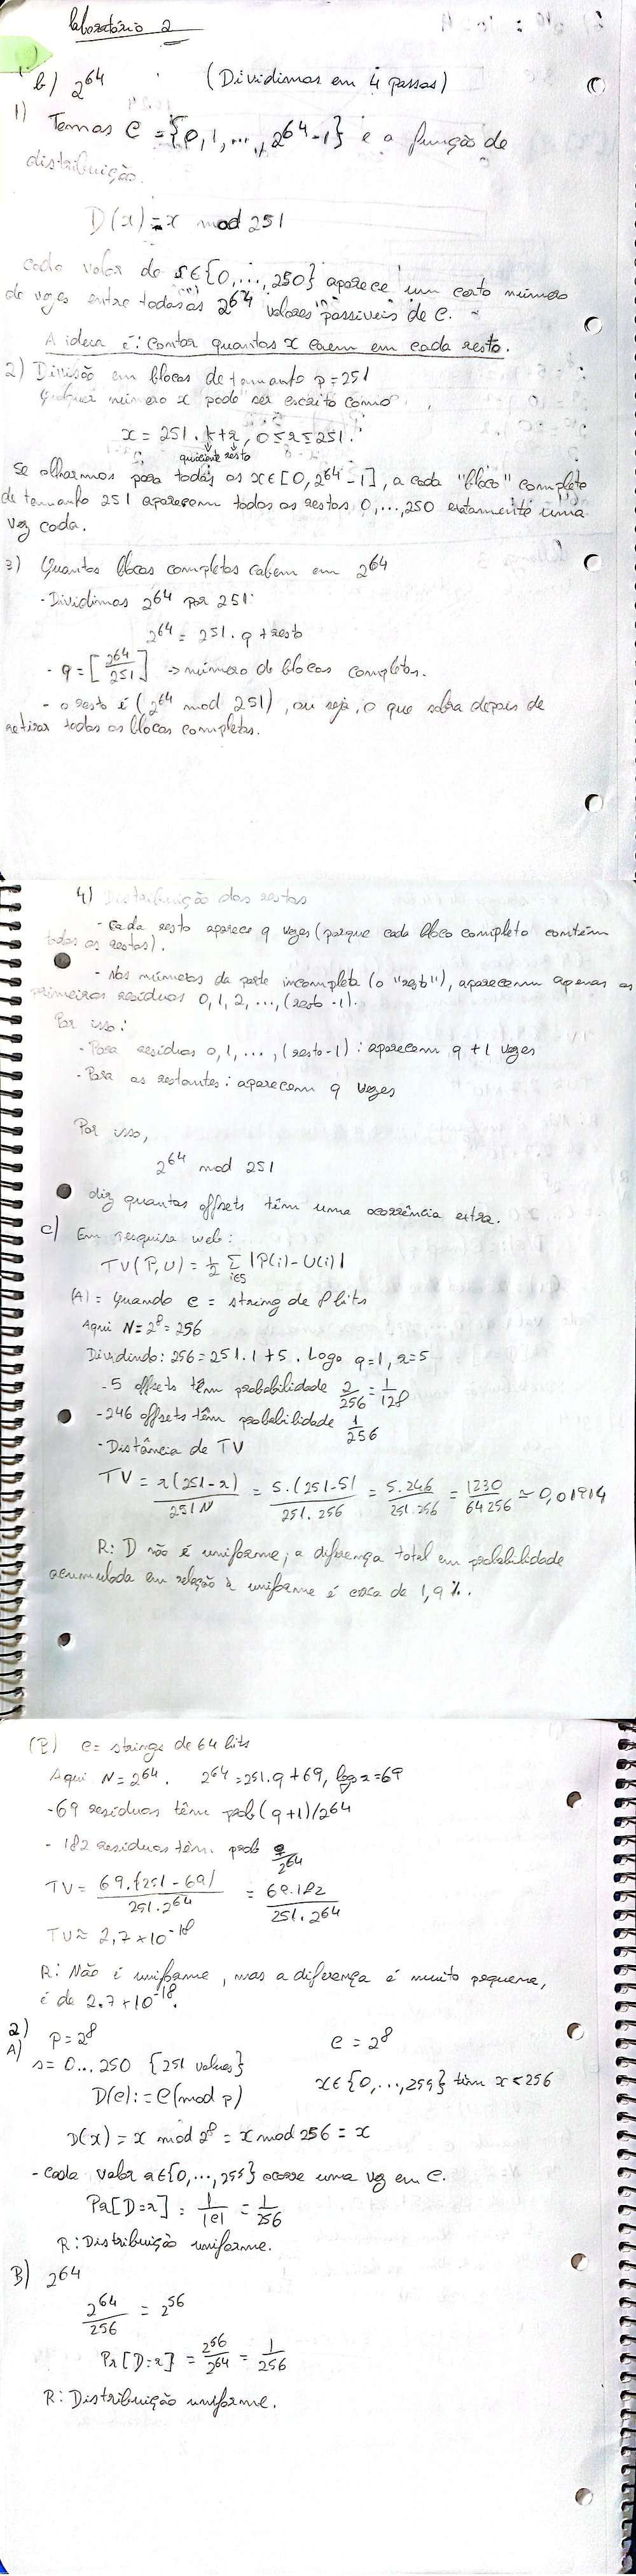 Laboratório 2
1)
b) 2^64 (Dividimos em 4 passos)
1) Temos C = {0, 1, ..., 2^64 - 1} e a função de
distribuição.
D(x) = x mod 251
cada valor de s ∈ {0, ..., 250} aparece um certo número
de vezes entre todos os 2^64 valores possíveis de C.
A ideia é: contar quantos x caem em cada resto.
2) Divisão em blocos de tamanho p = 251
Qualquer número x pode ser escrito como
x = 251 . k + r, 0 ≤ r ≤ 251.
quociente resto
Se olharmos para todos os x ∈ [0, 2^64 - 1], a cada "bloco" completo
de tamanho 251 aparecem todos os restos 0, ..., 250 exatamente uma
vez cada.
3) Quantos blocos completos cabem em 2^64
- Dividimos 2^64 por 251:
2^64 = 251 . q + resto
- q = [2^64/251] → número de blocos completos.
- o resto é (2^64 mod 251), ou seja, o que sobra depois de
retirar todos os blocos completos.
4) Distribuição dos restos
- Cada resto aparece q vezes (porque cada bloco completo contém
todos os restos).
- Nos números da parte incompleta (o "resto"), aparecem apenas os
primeiros resíduos 0, 1, 2, ..., (resto - 1).
Por isso:
- Para resíduos 0, 1, ..., (resto - 1) : aparecem q + 1 vezes
- Para os restantes : aparecem q vezes
Por isso,
2^64 mod 251
diz quantos offsets têm uma ocorrência extra.
c) Em pesquisa web:
TV(P, U) = 1/2 Σ i∈S |P(i) - U(i)|
(A) = Quando C = string de 8 bits
Aqui N = 2^8 = 256
Dividindo: 256 = 251 . 1 + 5 . Logo q = 1, r = 5
- 5 offsets têm probabilidade 2/256 = 1/128
- 246 offsets têm probabilidade 1/256
- Distância de TV
TV = r(251 - r)/251N = 5.(251 - 5)/251 . 256 = 5.246/251.256 = 1230/64256 ≃ 0,01914
R: D não é uniforme; a diferença total em probabilidade
acumulada em relação à uniforme é cerca de 1,9 %.
(B) C = strings de 64 bits
Aqui N = 2^64. 2^64 = 251.q + 69, logo r = 69
- 69 resíduos têm prob (q + 1)/2^64
- 182 resíduos têm prob q/2^64
TV = 69.(251 - 69)/251.2^64 = 69.182/251.2^64
TV ≈ 2,7 × 10^-18
R: Não é uniforme, mas a diferença é muito pequena,
é de 2.7 × 10^-18.
2)
A) p = 2^8 C = 2^8
s = 0 ... 250 {251 values}
x ∈ {0, ..., 255} têm x < 256
D(C) := C (mod p)
D(x) = x mod 2^8 = x mod 256 = x
- Cada valor r ∈ {0, ..., 255} ocorre uma vez em C.
Pr[D = r] = 1/|C| = 1/256
R: Distribuição uniforme.
B) 2^64
2^64/256 = 2^56
Pr[D = r] = 2^56/2^64 = 1/256
R: Distribuição uniforme.